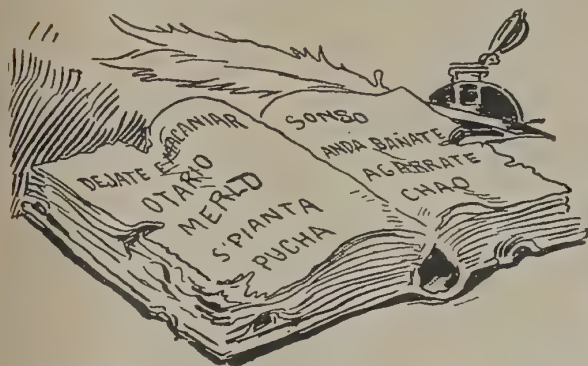 DEJATE E MACANIAR
OTARIO
MERLO
S'PIANTA
PUCHA
SONSO
ANDA BAÑATE
AGARRATE
CHAO